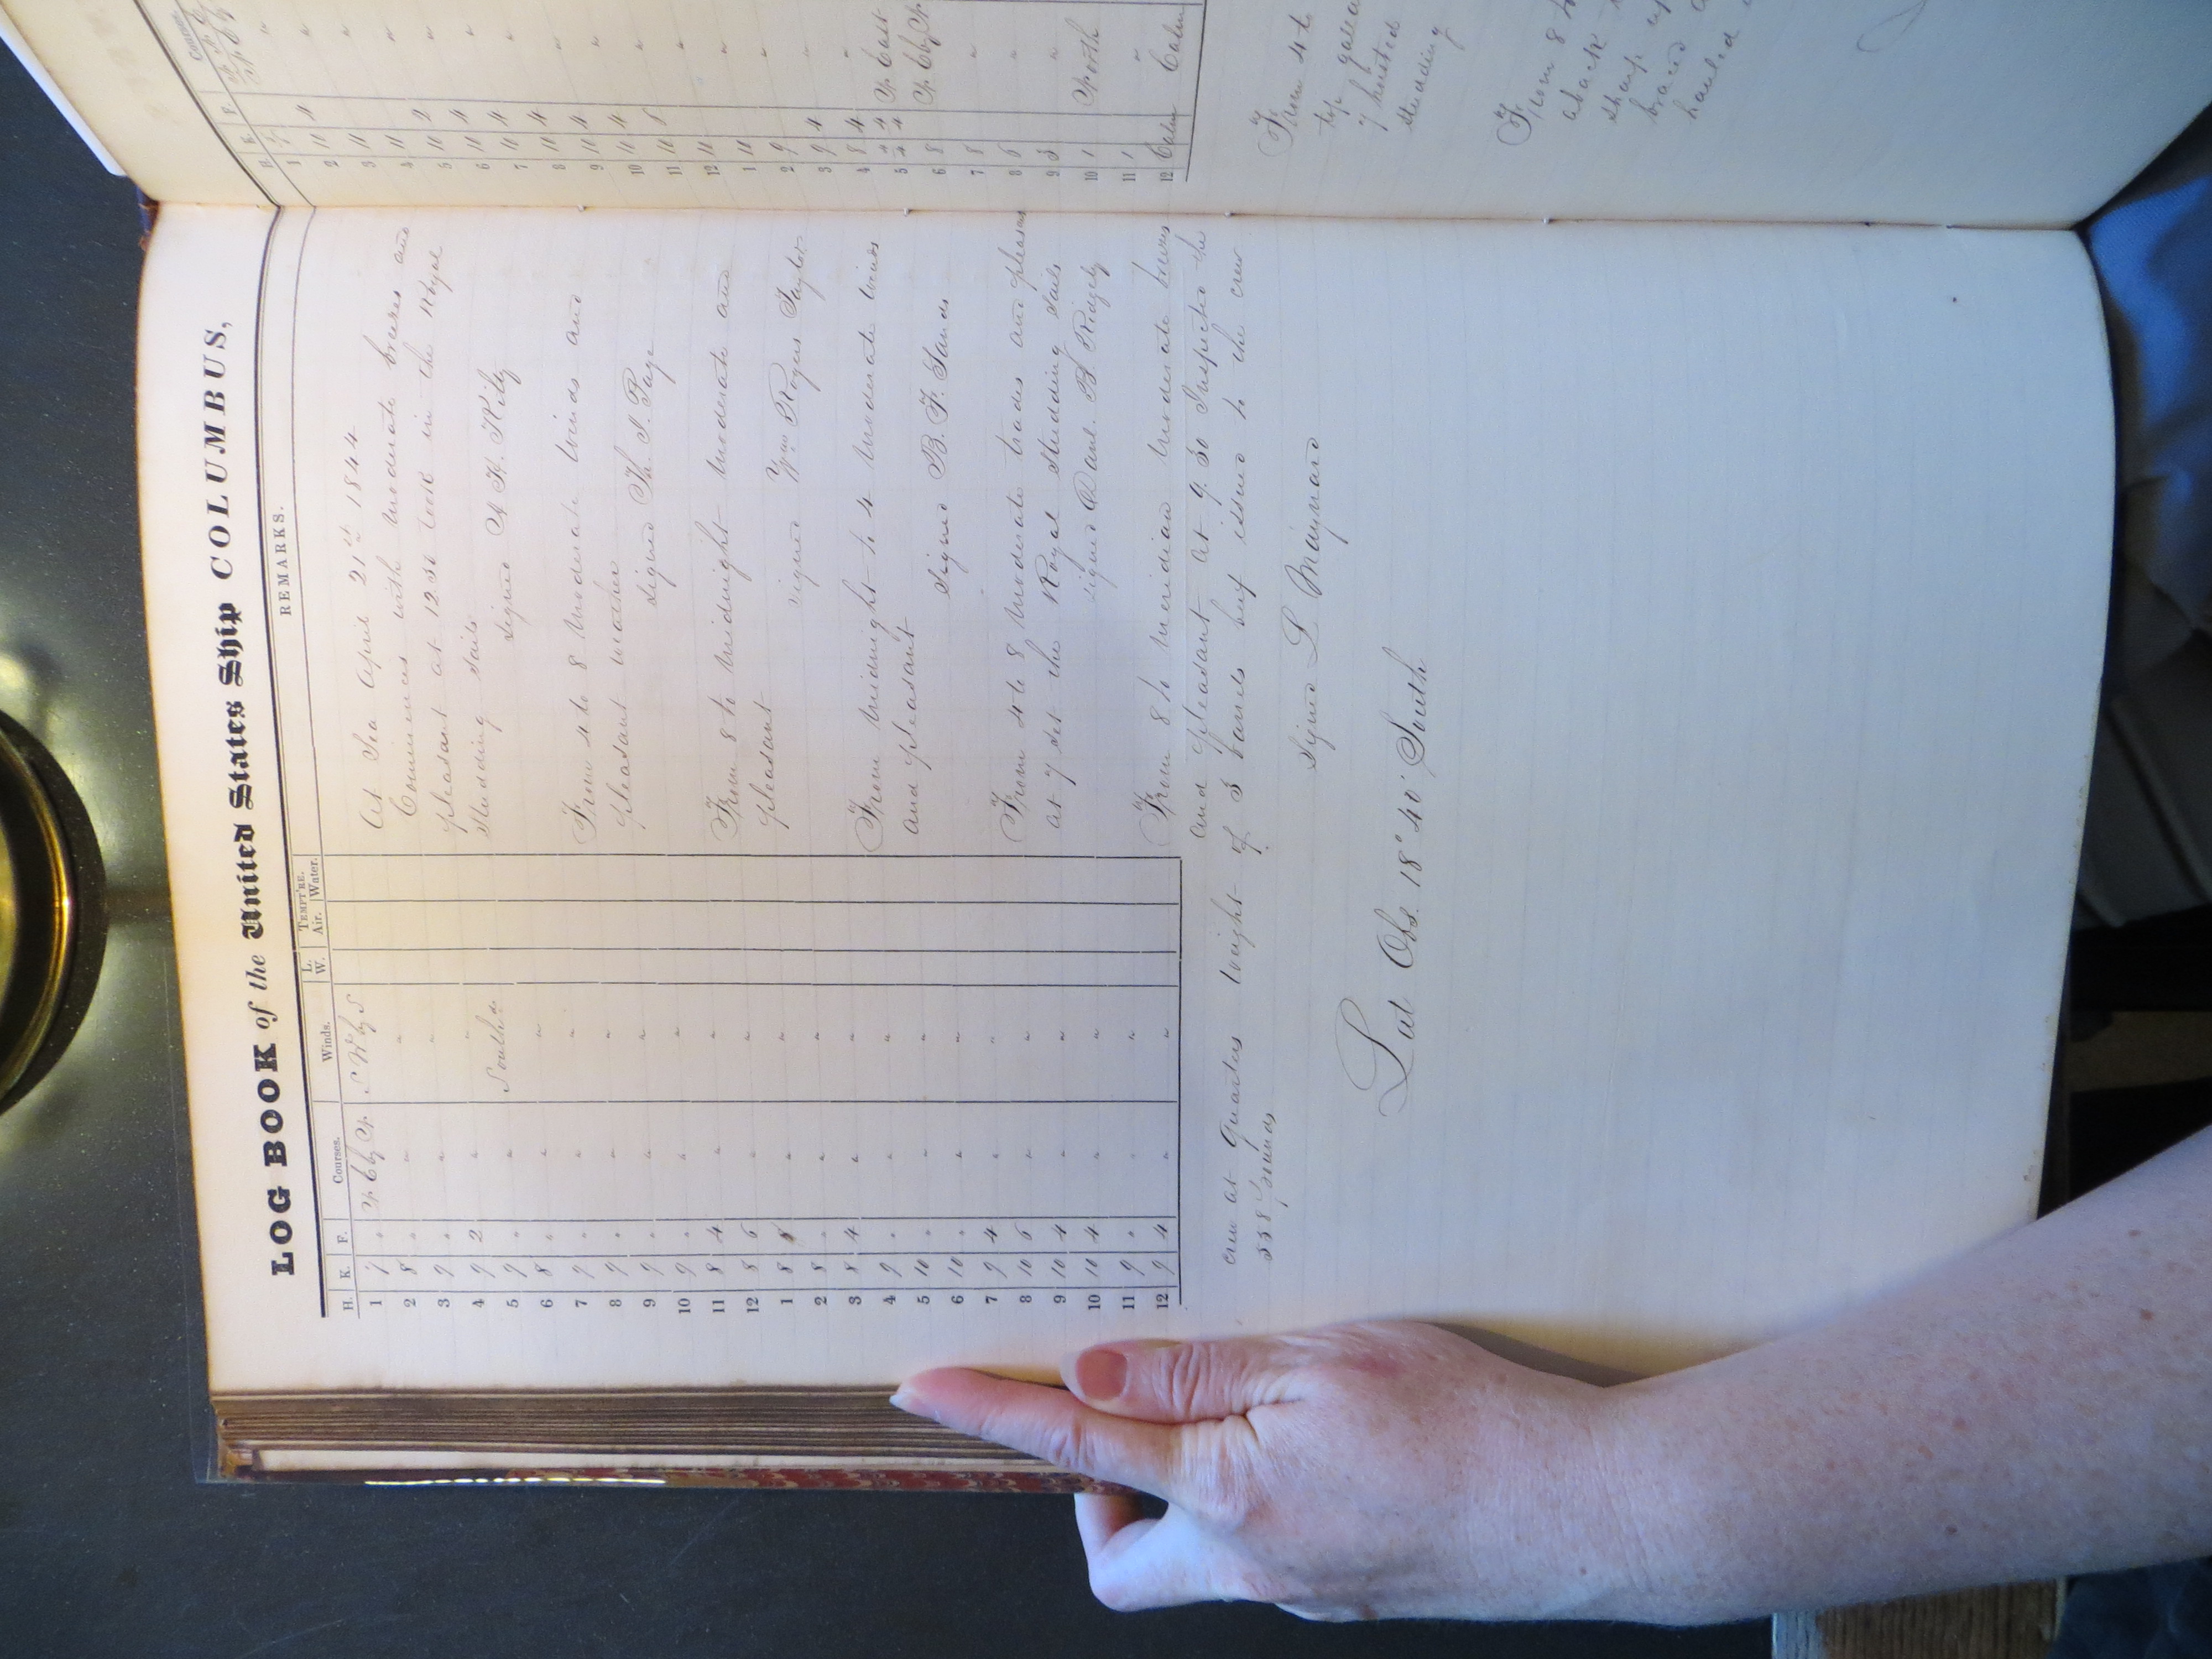 LOG BOOK of the United States Ship COLUMBUS,
H. K. F. Courses. Winds. L. W. TEMPT'RE. Air. Water. REMARKS.
1 7 " N. E by N. S W by S
2 8 " " "
3 9 " " "
4 9 2 " "
5 9 " " South d.
6 8 " " "
7 9 " " "
8 9 " " "
9 9 " " "
10 9 " " "
11 8 4 " "
12 8 6 " "
1 8 " "
2 8 " " "
3 8 4 " "
4 9 " " "
5 10 " " "
6 10 " " "
7 9 4 " "
8 10 6 " "
9 10 4 " "
10 10 4 " "
11 9 " " "
12 9 4 " "
At Sea April 21st 1844
Commences with moderate breezes and
pleasant at 12.30 took in the Royal
Studding sails
Signed A. H. Kilty
From 4 to 8 Moderate winds and
pleasant weather
Signed Th. J. Page
From 8 to Midnight Moderate and
pleasant
signed Wm Rogers Taylor
From Midnight to 4 Moderate winds
and pleasant
Signed B. F. Sands
From 4 to 8 Moderate trades and pleasant
at 7 set the Royal Studding sails
signed Danl. B. Ridgely
From 8 to Meridian Moderate breezes
and pleasant at 9.30 Inspected the
crew at Quarters weight of 3 barrels beef issued to the crew
558 pounds
Signed L Maynard
Lat Obs. 18° 40' South
H. K. F. Courses
1
2
3
4
5
6
7
8
9
10
11
12
1
2
3
4
5 N. East
6 N. E by N.
7
8
9
10 1 North
11 1 "
12 Calm Calm
From 4 to
7 hoisted
studding
From 8 to
aback
sharp up
braced
hauled